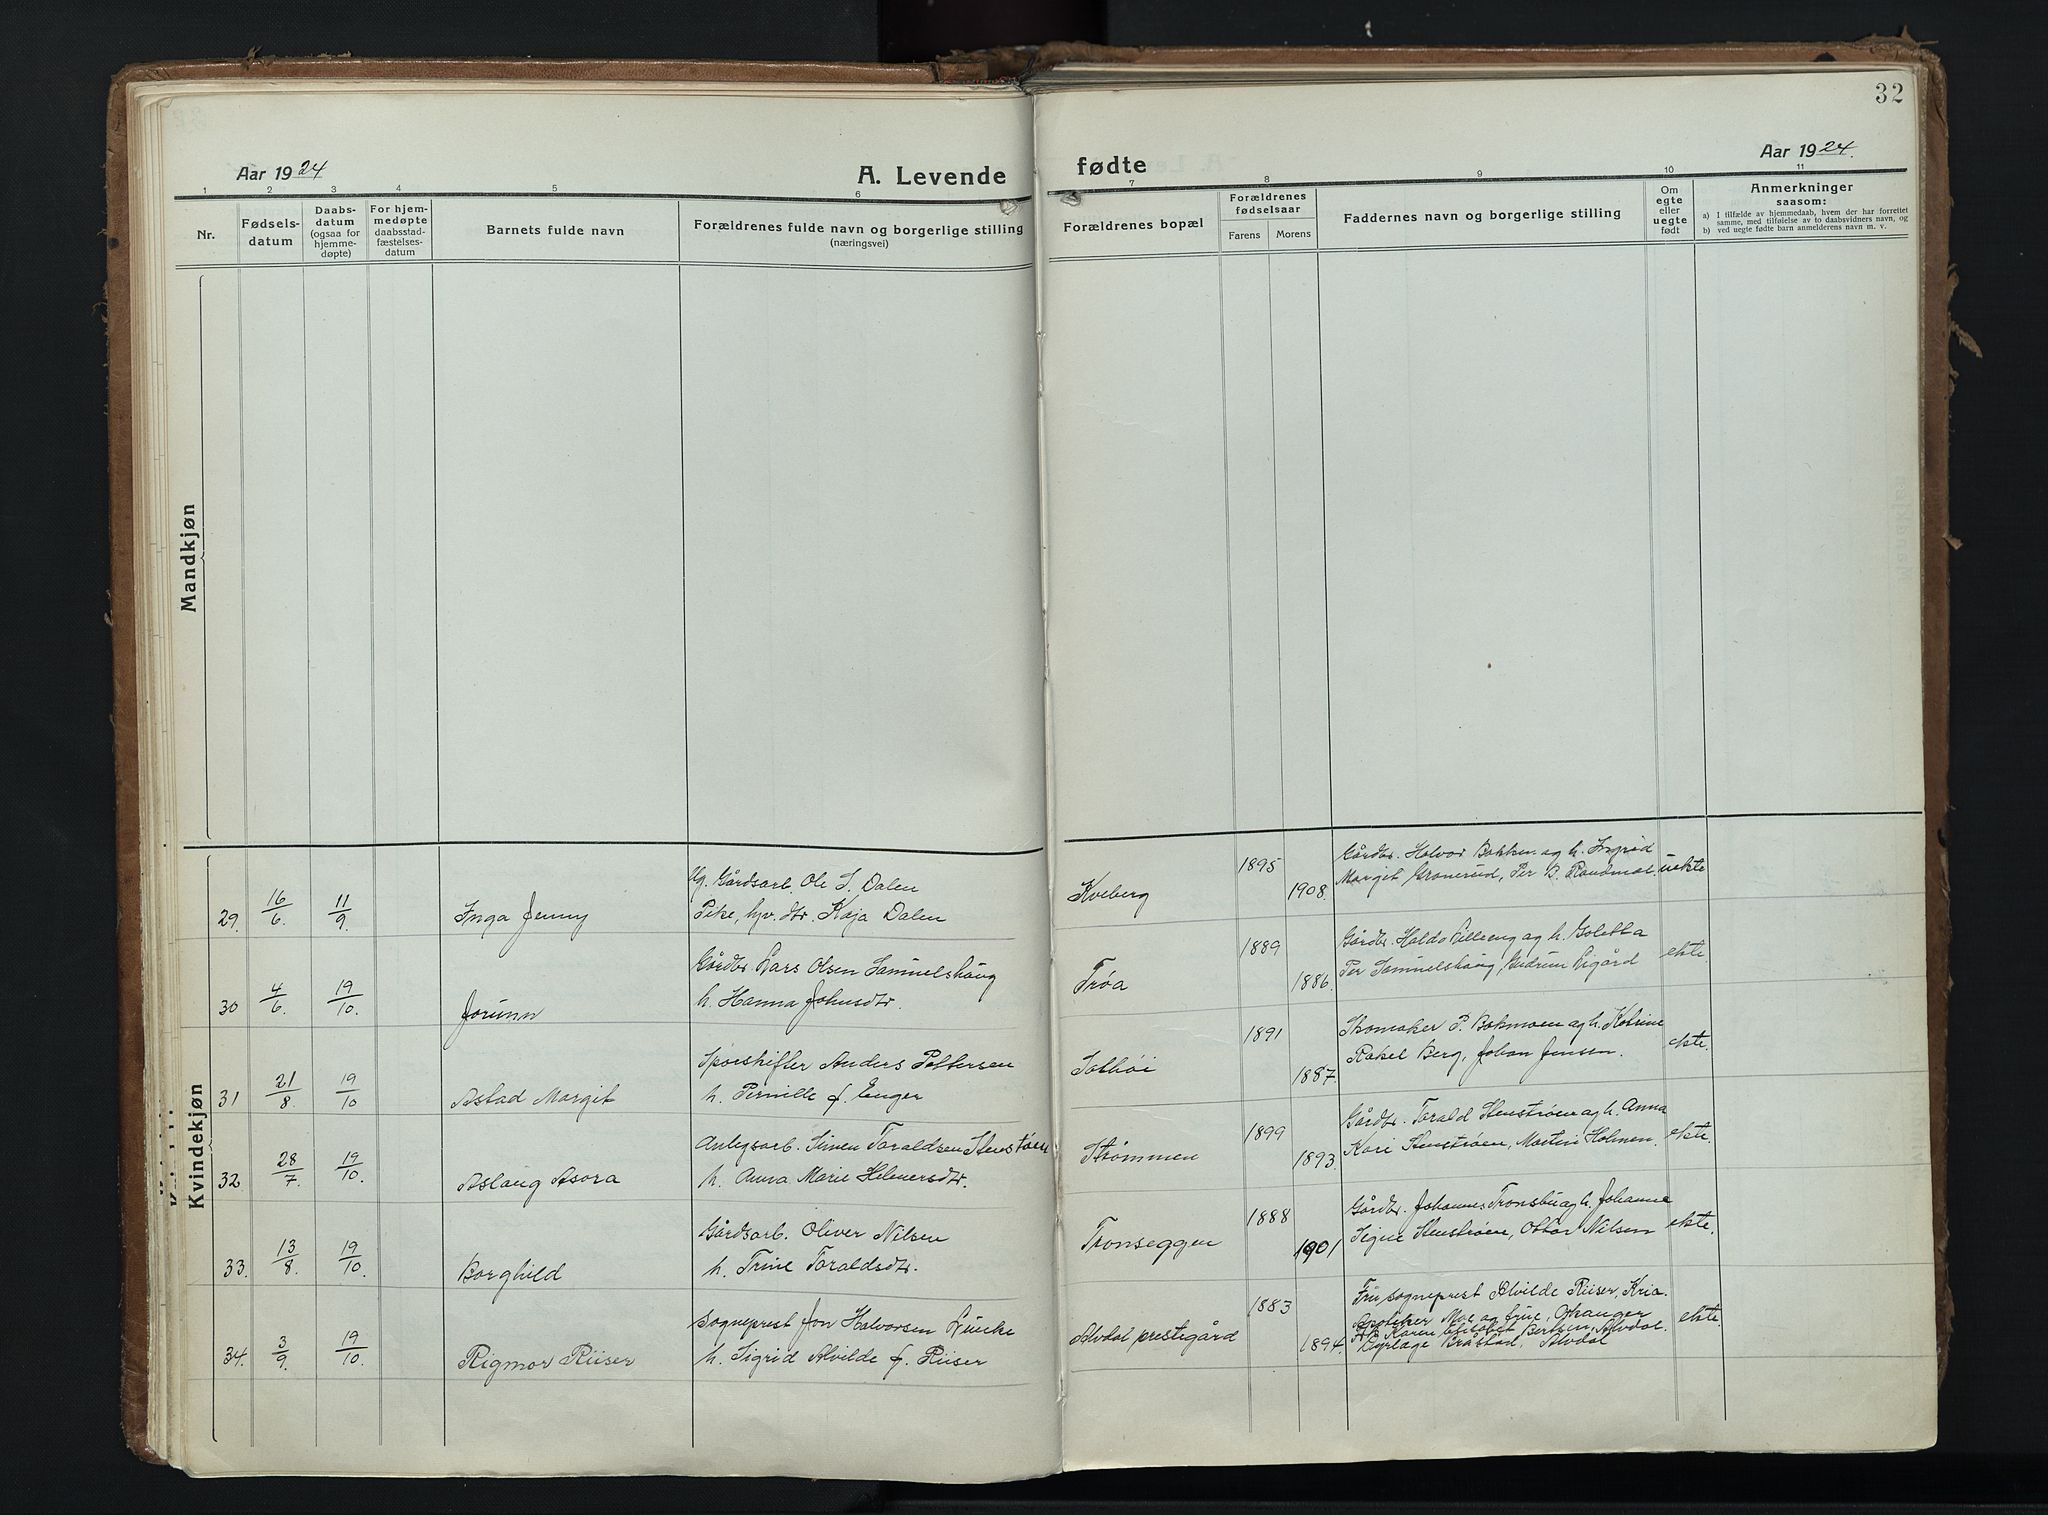 32
Aar 1924
A. Levende
fødte
Aar 1924.
1 2 3 4 5 6 7 8 9 10 11
Nr.
Fødsels-
datum
Daabs-
datum
(ogsaa for
hjemme-
døpte)
For hjem-
medøpte
daabsstad-
fæstelses-
datum
Barnets fulde navn
Forældrenes fulde navn og borgerlige stilling
(næringsvei)
Forældrenes bopæl
Forældrenes
fødselsaar
Farens Morens
Faddernes navn og borgerlige stilling
Om
egte
eller
uegte
født
Anmerkninger
saasom:
a) I tilfælde av hjemmedaab, hvem der har forrettet
samme, med tilføielse av to daabsvidners navn, og
b) ved uegte fødte barn anmelderens navn m. v.
Mandkjøn
Kvindekjøn
29. 16/6. 11/9. Inga Jenny
Ug. Gårdsarb. Ole S. Dalen
Pike, hjv. dtr. Kaja Dalen
Kveberg
1895
1908.
Gårdbr. Halvor Bakken og h. Ingrid
Margit Gronerud, Per B. Randmæl.
uekte
30 4/6. 19/10. Jorunn
Gårdbr. Lars Olsen Samuelshaug
h. Hanna Johnsdtr.
Trøa
1889
1886.
Gårdbr. Haldo Lilleeng og h. Goletta
Per Samuelshaug, Gudrun Nigård
ekte.
31 21/8. 19/10 Astad Margit
Sporskifter Anders Pettersen
h. Pernille f. Enger
Solhøi
1891
1887.
Skomaker P. Bakmoen og h. Katrine
Rakel Berg, Johan Jensen.
ekte.
32 28/7. 19/10. Aslaug Asora
Anlegsarb. Simen Toraldsen Stenstrøen
h. Anna Marie Helmersdtr.
Strømmen
1899
1893.
Gårdbr. Torald Stenstrøen og h. Anna
Kari Stenstrøen, Martin Holmen.
ekte.
33. 13/8. 19/10. Borghild
Gårdsarb. Oliver Nilsen
h. Trine Toraldsdtr.
Tronseggen
1888
1901
Gårdbr. Johannes Tronsbu og h. Johanne
Signe Stenstrøen, Ottar Nilsen
ekte.
34. 3/9. 19/10. Rigmor Riiser
Sogneprest Jon Halvorsen
h. Sigrid Alvilde f. Riiser
Alvdal prestegård
1883
1894.
Fru sogneprest Alvilde Riiser, Kria.
Apoteker Moe og frue, Orkanger
Karen Elisabet Bertsen, Alvdal.
Kråstad, Alvdal
ekte.